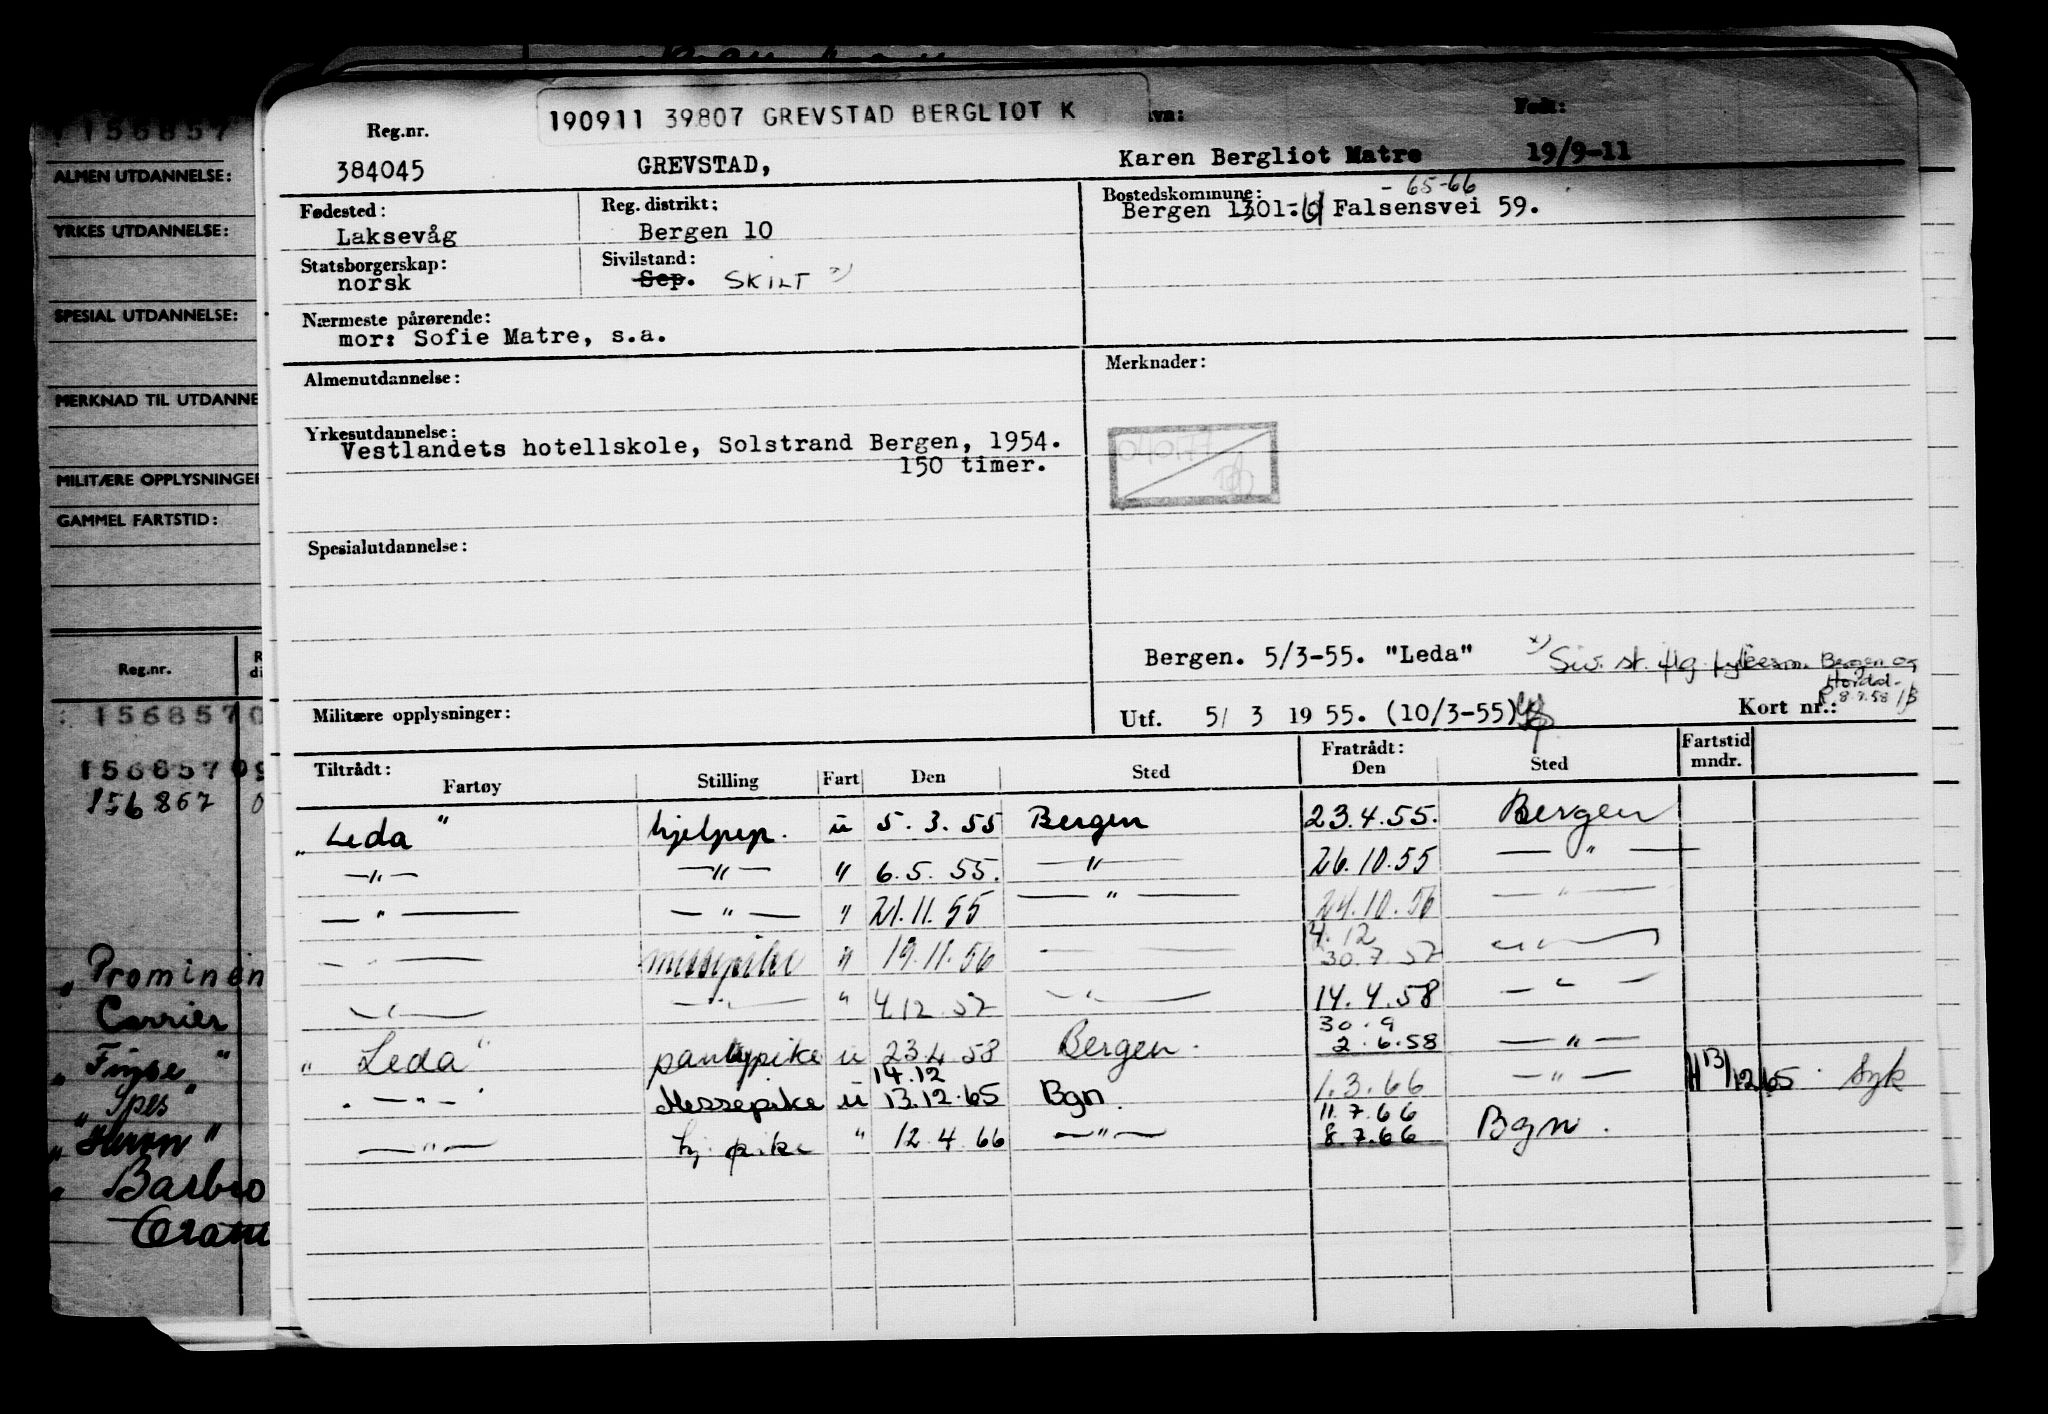 190911 39807 GREVSTAD BERGLIOT K
Født:
Reg.nr.
384045 GREVSTAD, Karen Bergliot Matre 19/9-11
Fødested: Reg. distrikt: Bostedskommune: - 65-66
Laksevåg Bergen 10 Bergen 1301. Falsensvei 59.
Statsborgerskap: Sivilstand:
norsk Sep. SKILT x)
Nærmeste pårørende:
mor: Sofie Matre, s.a.
Almenutdannelse: Merknader:
Yrkesutdannelse:
Vestlandets hotellskole, Solstrand Bergen, 1954.
150 timer.
Spesialutdannelse:
Bergen. 5/3-55. "Leda" x) Siv. st. flg. fylkesm. Bergen og
Hordal.
8.9.58
Militære opplysninger: Utf. 5/ 3 19 55. (10/3-55) Kort nr.:
Tiltrådt: Fratrådt: Fartstid
Fartøy Stilling Fart Den Sted Den Sted mndr.
"Leda" hjelpep. u 5.3.55 Bergen 23.4.55. Bergen
—"— —"— " 6.5.55. —"— 26.10.55 —"—
—"— —"— " 21.11.55 —"— 24.10.56 —"—
4.12
—"— messepike " 19.11.56 —"— 30.7.57 —"—
—"— —"— " 4.12.57 —"— 14.4.58 —"—
30.9
"Leda" pantrypike u 23.4.58 Bergen. 2.6.58 —"—
14.12
—"— Messepike u 13.12.65 Bgn. 1.3.66 —"— H 13/12 65. Syk
11.7.66
—"— hj. pike " 12.4.66 —"— 8.7.66 Bgn.
156857
ALMEN UTDANNELSE:
YRKES UTDANNELSE:
SPESIAL UTDANNELSE:
MERKNAD TIL UTDANNE
MILITÆRE OPPLYSNINGER
GAMMEL FARTSTID:
Reg.nr. R
di
: 1568570
15685709
156867 0
"Prominen
Carrier
"
"Spes"
"Barbro